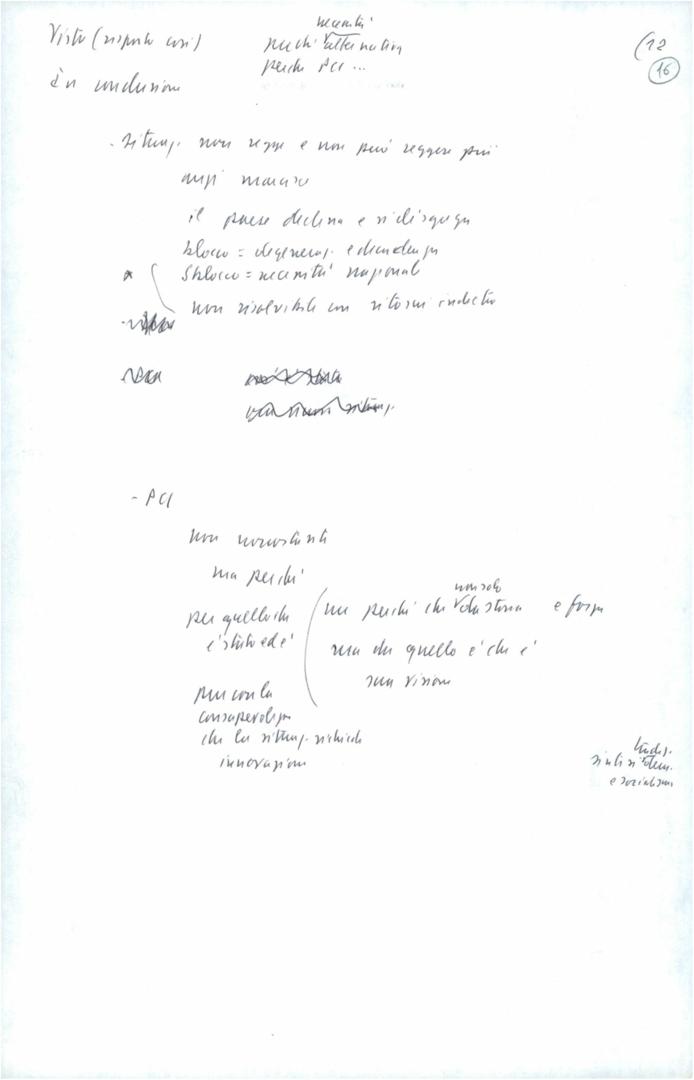 Visto (risposto così)
necessità
perché alternativa
perché PCI ...
(12
16
In conclusione
- Situaz. non regge e non può reggere più
anzi marcisce
il paese declina e si disgrega
blocco = degeneraz. e decadenza
Sblocco = necessità nazionale
non risolvibile con ritorni indietro
- PCI
non nonostante
ma perché
per quello che
è stato ed è
non perché che
non solo
storia e forza
ma da quello è che è
sua visione
pur con la
consapevolezza
che la situaz. richiede
innovazioni
e socialismo